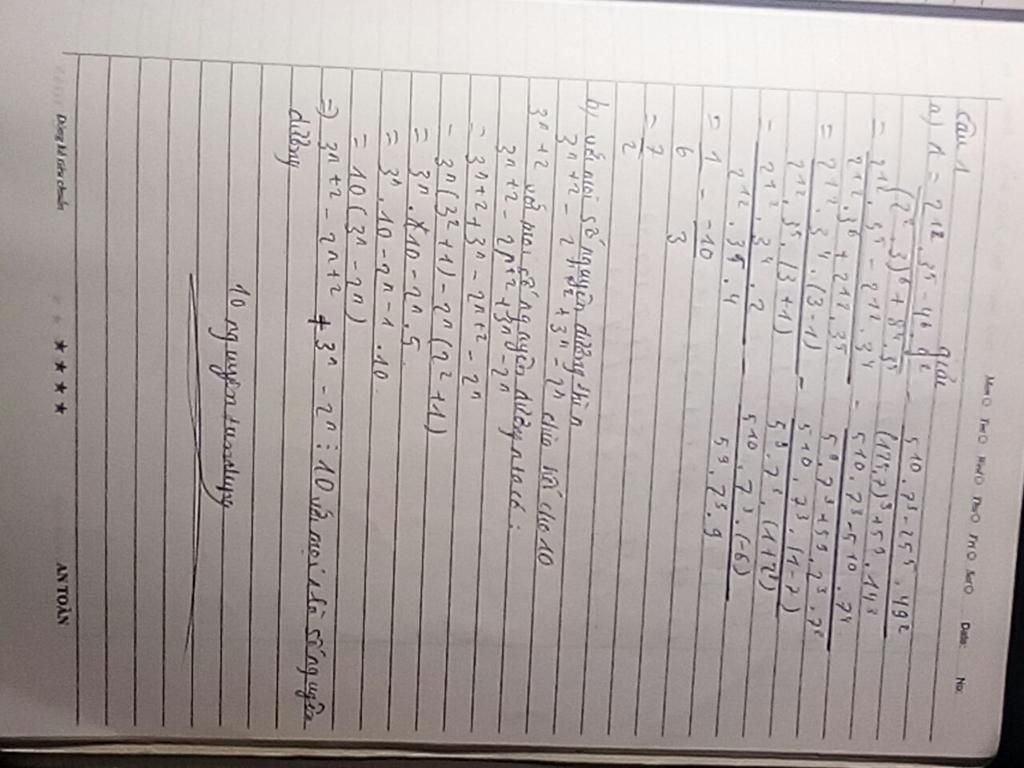 Date: No:
Câu 1 giải
a) A = 2¹². 3⁵ - 4⁶. 9² / (2². 3)⁶ + 8⁴. 3⁵ - 5¹⁰. 7³ - 25⁵. 49² / (125.7)³ + 5⁹. 14³
= 2¹². 3⁵ - 2¹². 3⁴ / 2¹². 3⁶ + 2¹². 3⁵ - 5¹⁰. 7³ - 5¹⁰. 7⁴ / 5⁹. 7³ + 5⁹. 2³. 7³
= 2¹². 3⁴. (3 - 1) / 2¹². 3⁵. (3 + 1) - 5¹⁰. 7³. (1 - 7) / 5⁹. 7³. (1 + 2³)
= 2¹². 3⁴. 2 / 2¹². 3⁵. 4 - 5¹⁰. 7³. (-6) / 5⁹. 7³. 9
= 1 / 6 - -10 / 3
= 7 / 2
b, với mọi số nguyên dương thì n
3n+2 - 2n+2 + 3n - 2n chia hết cho 10
3n+2 với mọi số nguyên dương n ta có :
3n+2 - 2n+2 + 3n - 2n
= 3n+2 + 3n - 2n+2 - 2n
= 3n (3² + 1) - 2n (2² + 1)
= 3n. 10 - 2n. 5
= 3n. 10 - 2n - 1. 10
= 10 (3n - 2n)
=) 3n+2 - 2n+2 + 3n - 2n ⋮ 10 với mọi n là số nguyên
dương
AN TOÀN